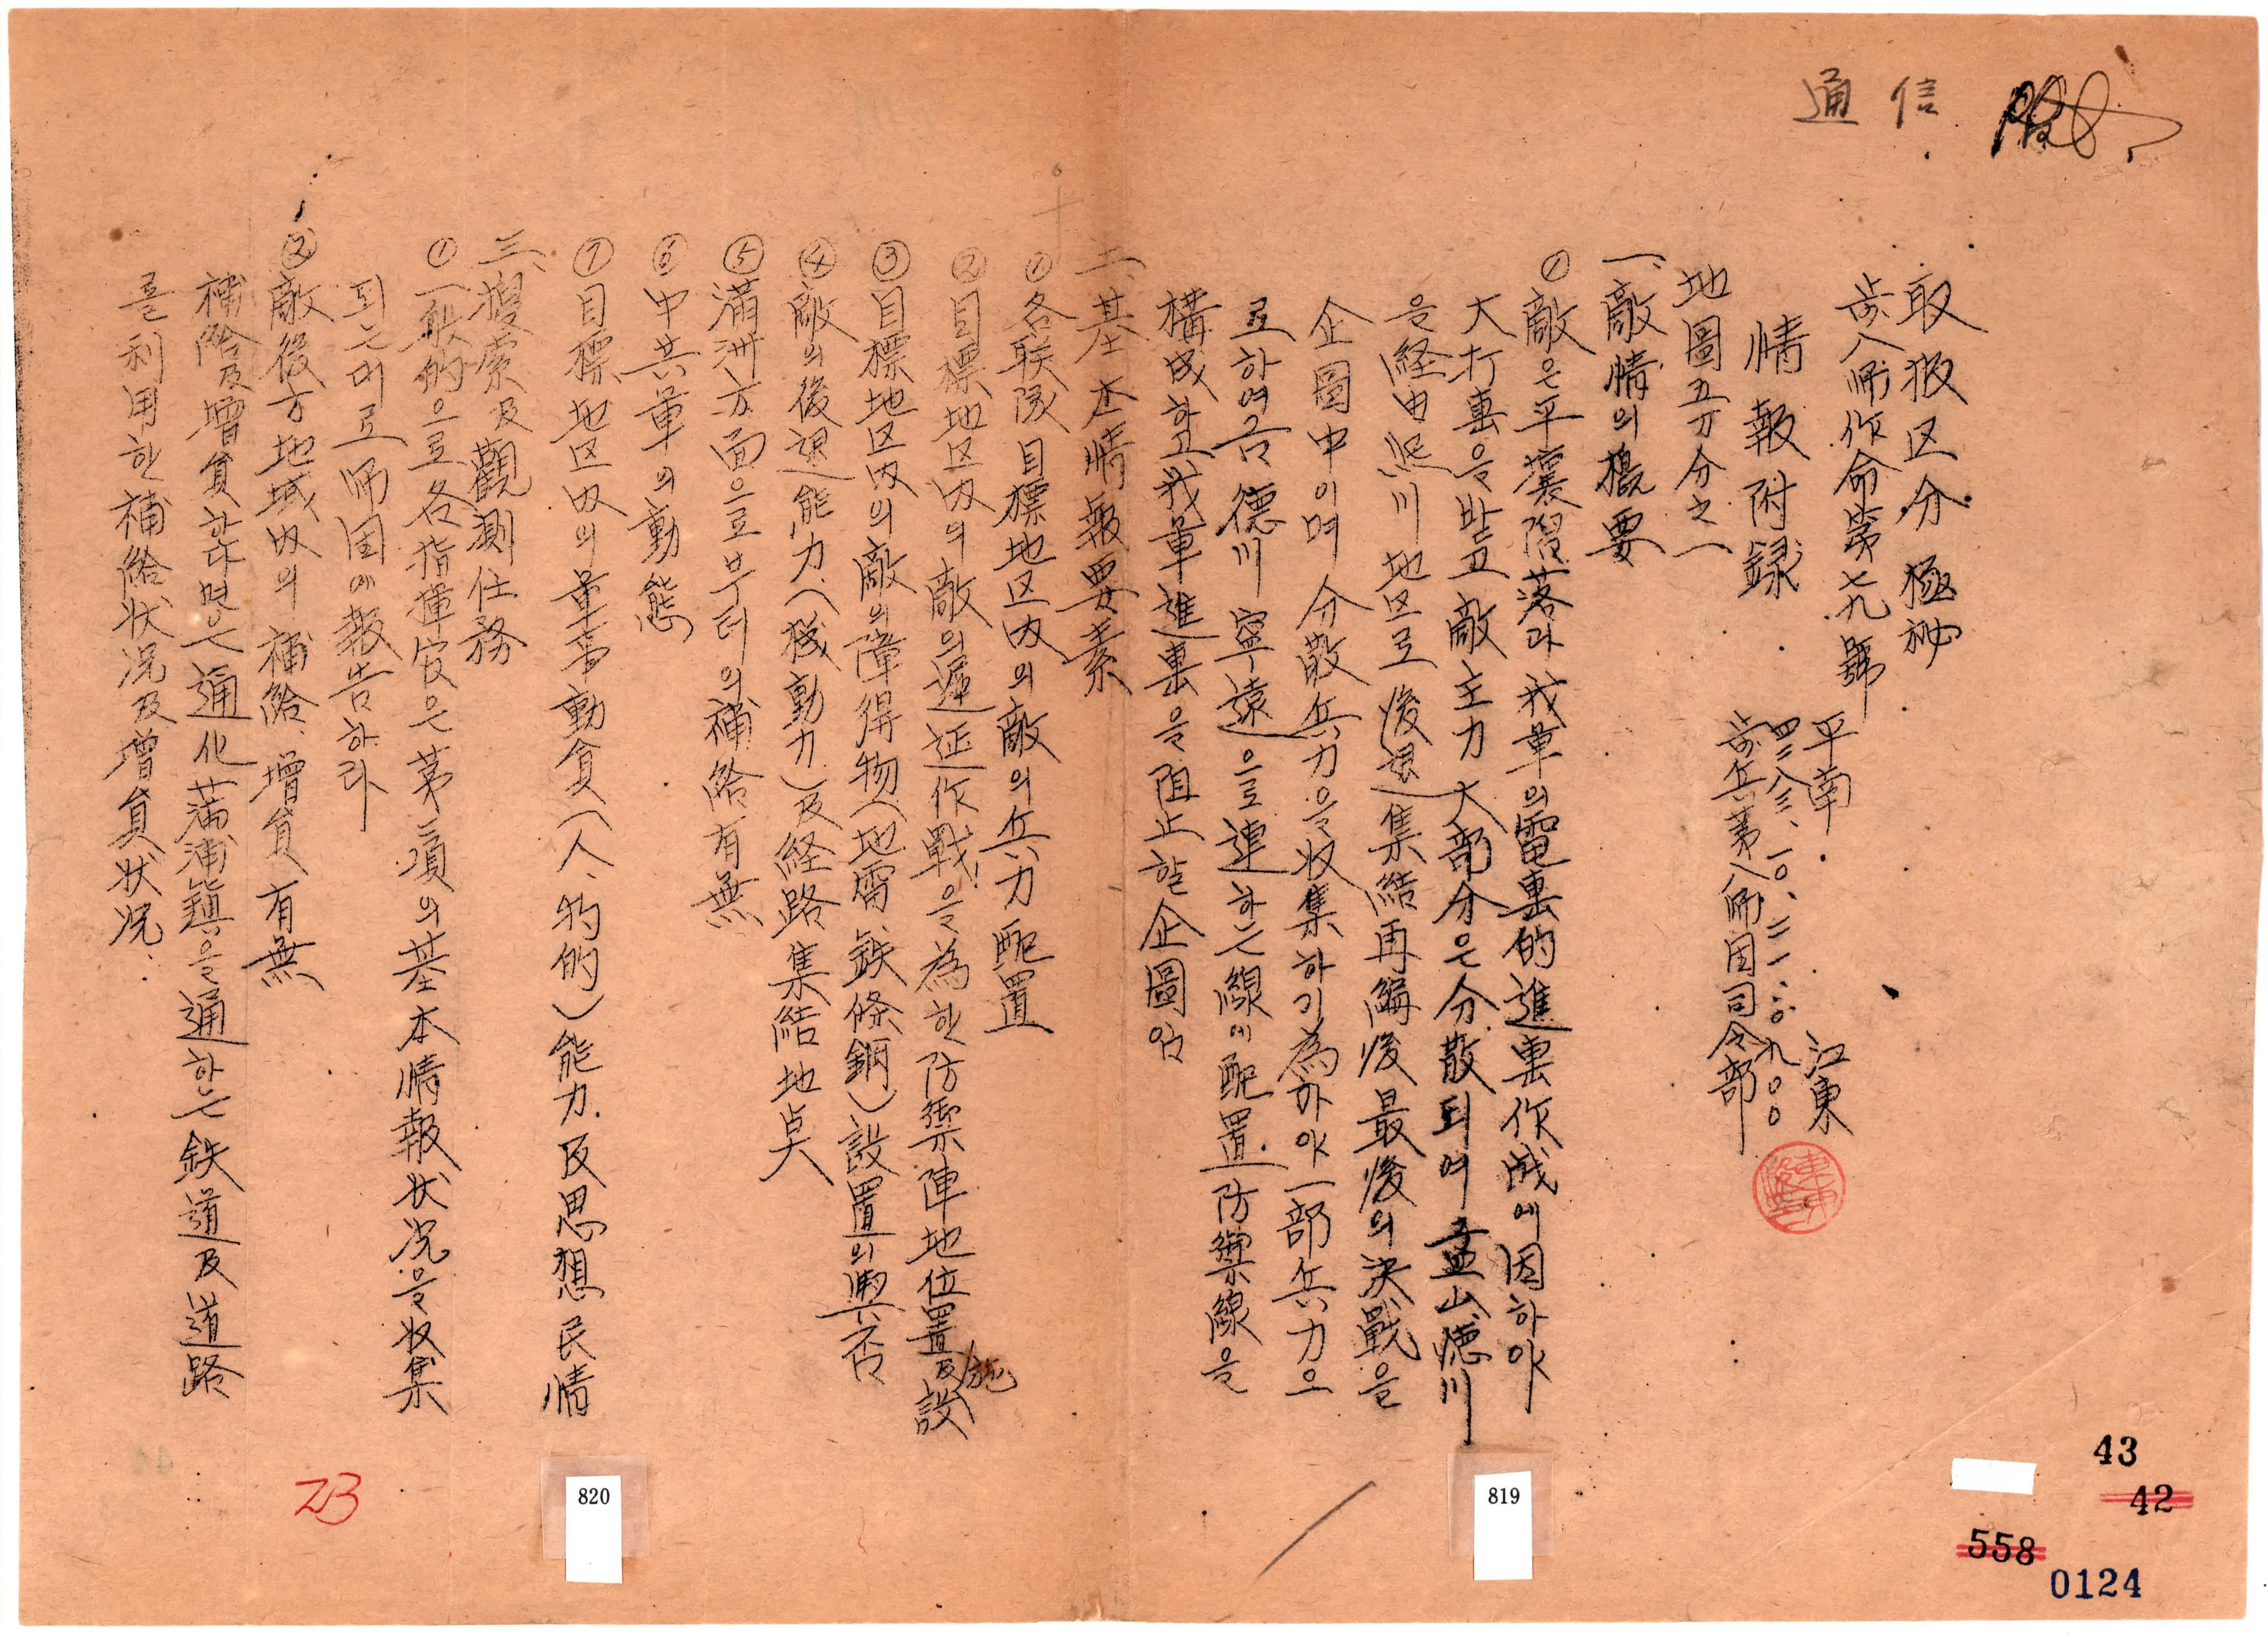 通信
取扱区分 極秘
步八師作命第七九號
平南 江東
四二八三、一〇、二一、〇九〇〇
步兵第八師団司令部
情報附録
地圖五万分之一
一、敵情의 概要
① 敵은 平壤陷落과 我軍의 電擊的 進擊作戰에 因하야
大打擊을 받고 敵主力 大部分은 分散되여 孟山 德川
을 経由 熙川地区로 後退 集結再編後 最後의 決戰을
企圖中이며 分散兵力을 收集하기 為하야 一部兵力으
로 하여금 德川 寧遠으로 連하는 線에 配置 防禦線을
構成하고 我軍進擊을 阻止할 企圖임
二、基本情報要素
① 各联隊 目標地区内의 敵의 兵力配置
② 目標地区内의 敵의 遲延作戰을 為한 防禦陣地位置及設施
③ 目標地区内의 敵의 障得物(地雷、鉄條鋼)設置의 與否
④ 敵의 後退能力(機動力)及経路 集結地点
⑤ 滿洲方面으로부터의 補給有無
⑥ 中共軍의 動態
⑦ 目標地区内의 軍事動員(人、物的)能力 及 思想 民情
三、搜索及觀測任務
① 一般的으로 各指揮官은 第二項의 基本情報状况을 收集
되는데로 師団에 報告하라
② 敵後方地域内의 補給、增員 有無
補給及增員한다면은 通化 滿浦鎮을 通하는 鉄道及道路
를 利用한 補給状况及增員状况
23
820
819
43
42
558
0124